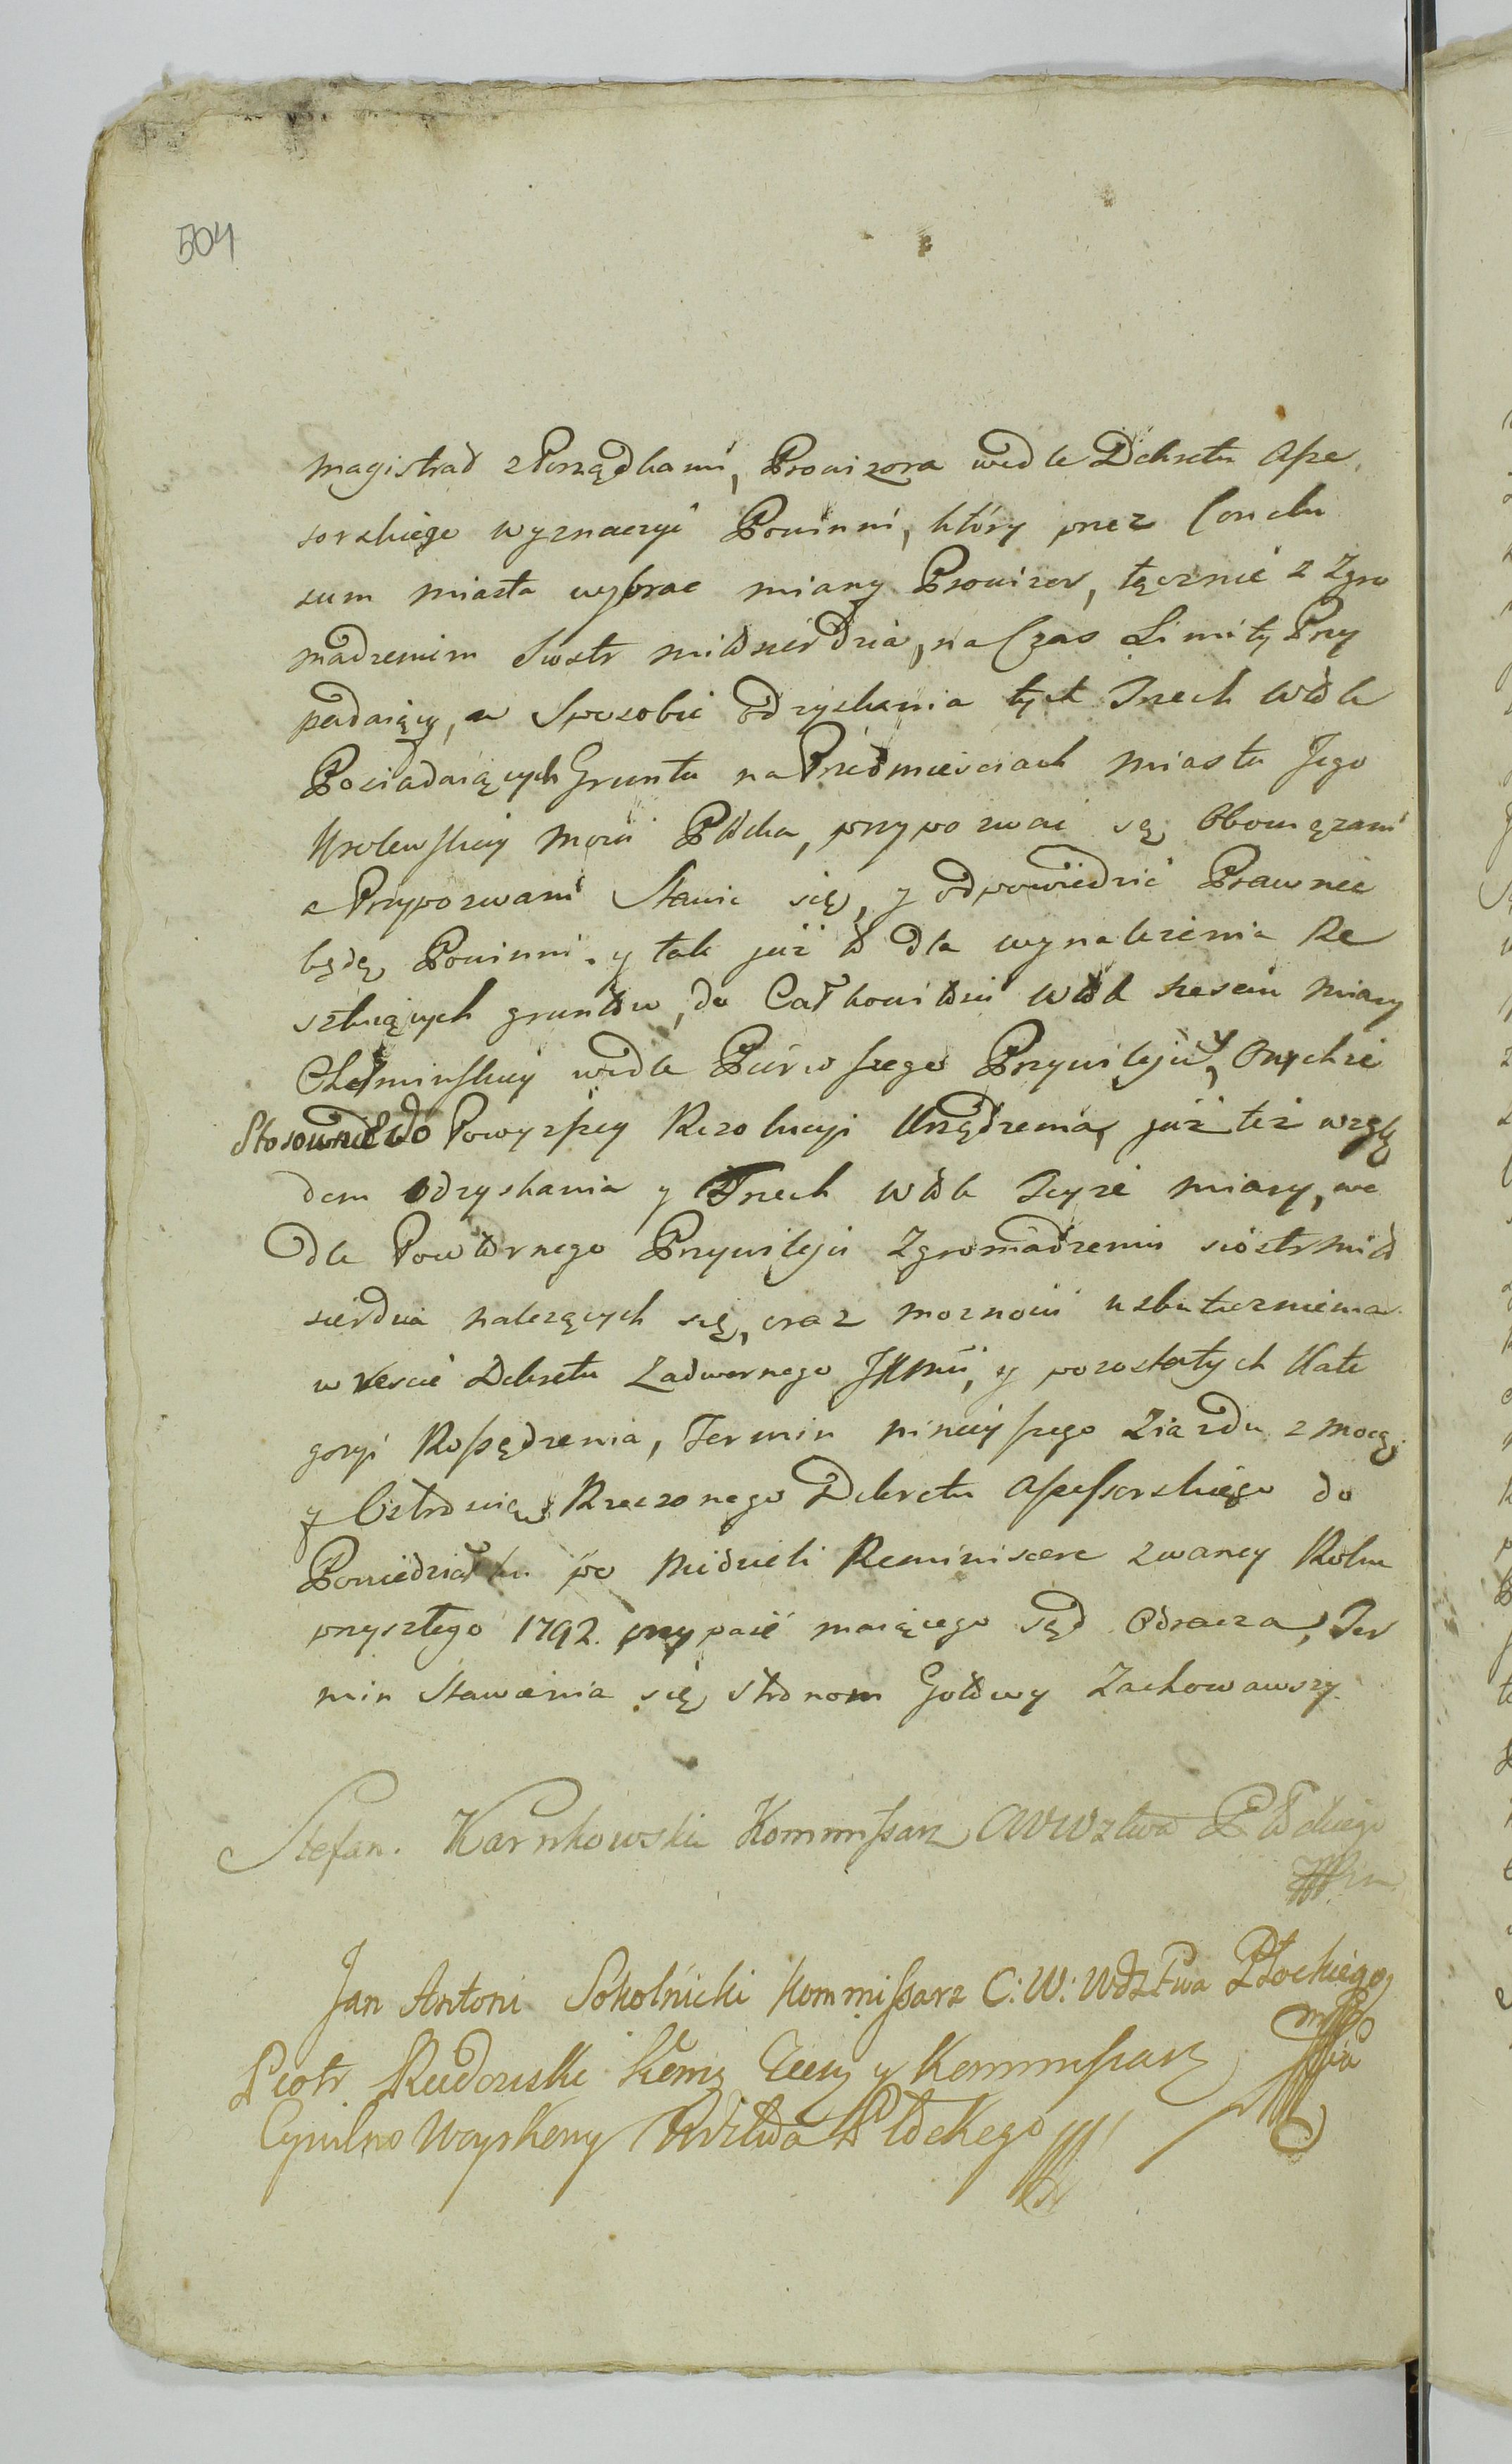 504
magistrad z Porządkami, Prowizora wedle Dekretu Asse
sorskiego wyznaczyć Powinni, który przez Conclu
sum miasta wybrać miany Prowizor, łącznie z Zgro
madzeniem Siostr miłosierdzia, na Czas Limity Przy
padaiący, w Sposobie odzyskania tych Trzech Włók
Posiadaiących Grunta na Przedmieściach miasta Jego
Krolewskiey mości Płocka, przypozwać są Obowiązani
a Przypozwani Stawić się, y odpowiedzić Prawnie
będą Powinni. y tak już to dla wynalezienia Re
sztuiących gruntów, do Całkowitości Włók sześciu miary
Chełminskiey wedle Pierwszego Przywileju, y Onychże
Stosownie do Powyższey Rezolucyi Urządzenia, już też wzglę
dem Odzyskania y Trzech Włók Teyże miary, we
dle Powtórnego Przywileju Zgromadzeniu siostr Miło
sierdzia należących się, oraz możności uskutecznienia
w Reście Dekretu Zadwornego JKMci, y pozostałych Kate
goryi Rosządzenia, Termin ninieyszego Ziazdu z mocą
y Rzeczonego Dekretu Assessorskiego do
Poniedziałku po Niedzieli Reminiscere zwaney Roku
przyszłego 1792. przypaść maiącego Sąd Odracza, Ter
min Stawania się stronom Gotowy Zachowawszy.
Stefan Karnkowski Kommissarz CWWdztwa Płockiego
Jan Antoni Sokolnicki Kommissarz C: W: Wdztwa Płockiego
Piotr Rudowski y Kommissarz
Cywilno Woyskowy Wdztwa Płockego